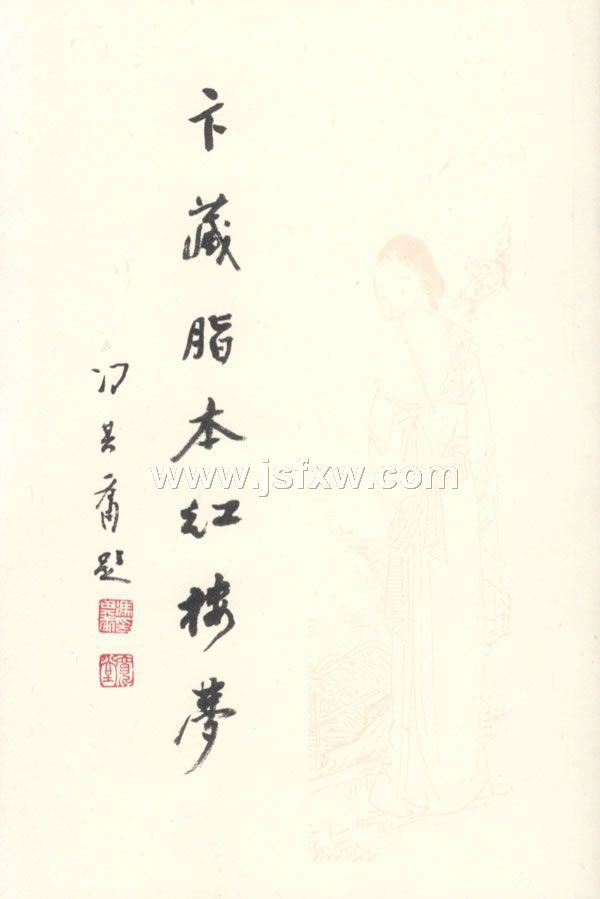 卞藏脂本红楼梦
冯其庸题
www.jsfxw.com